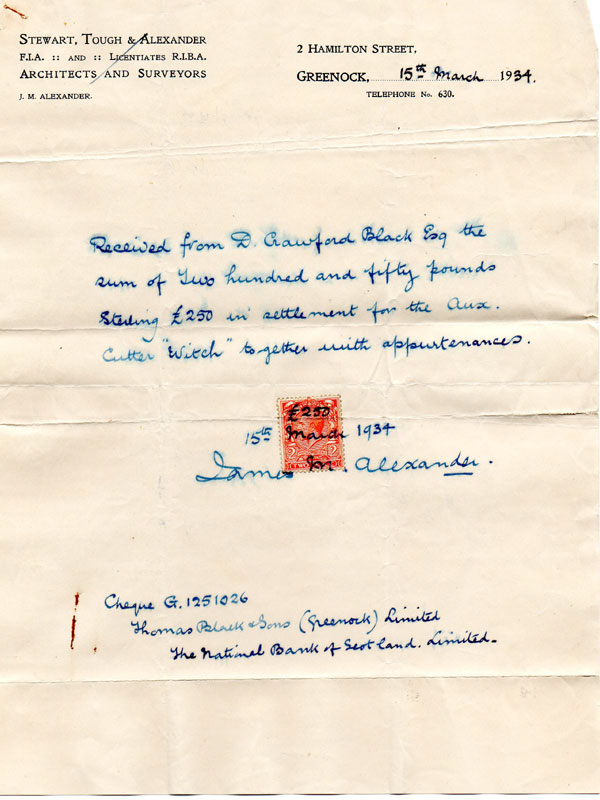 STEWART, TOUGH & ALEXANDER
F.I.A. :: AND :: LICENTIATES R.I.B.A.
ARCHITECTS AND SURVEYORS
J. M. ALEXANDER.
2 HAMILTON STREET,
GREENOCK, 15th March 1934.
TELEPHONE No. 630.
Received from D. Crawford Black Esq the
sum of Two hundred and fifty pounds
Sterling £250 in settlement for the Aux.
Cutter "Witch" together with appurtenances.
£250
15th March 1934
James M. Alexander.
Cheque G. 1251026
Thomas Black & Sons (Greenock) Limited
The National Bank of Scotland. Limited-